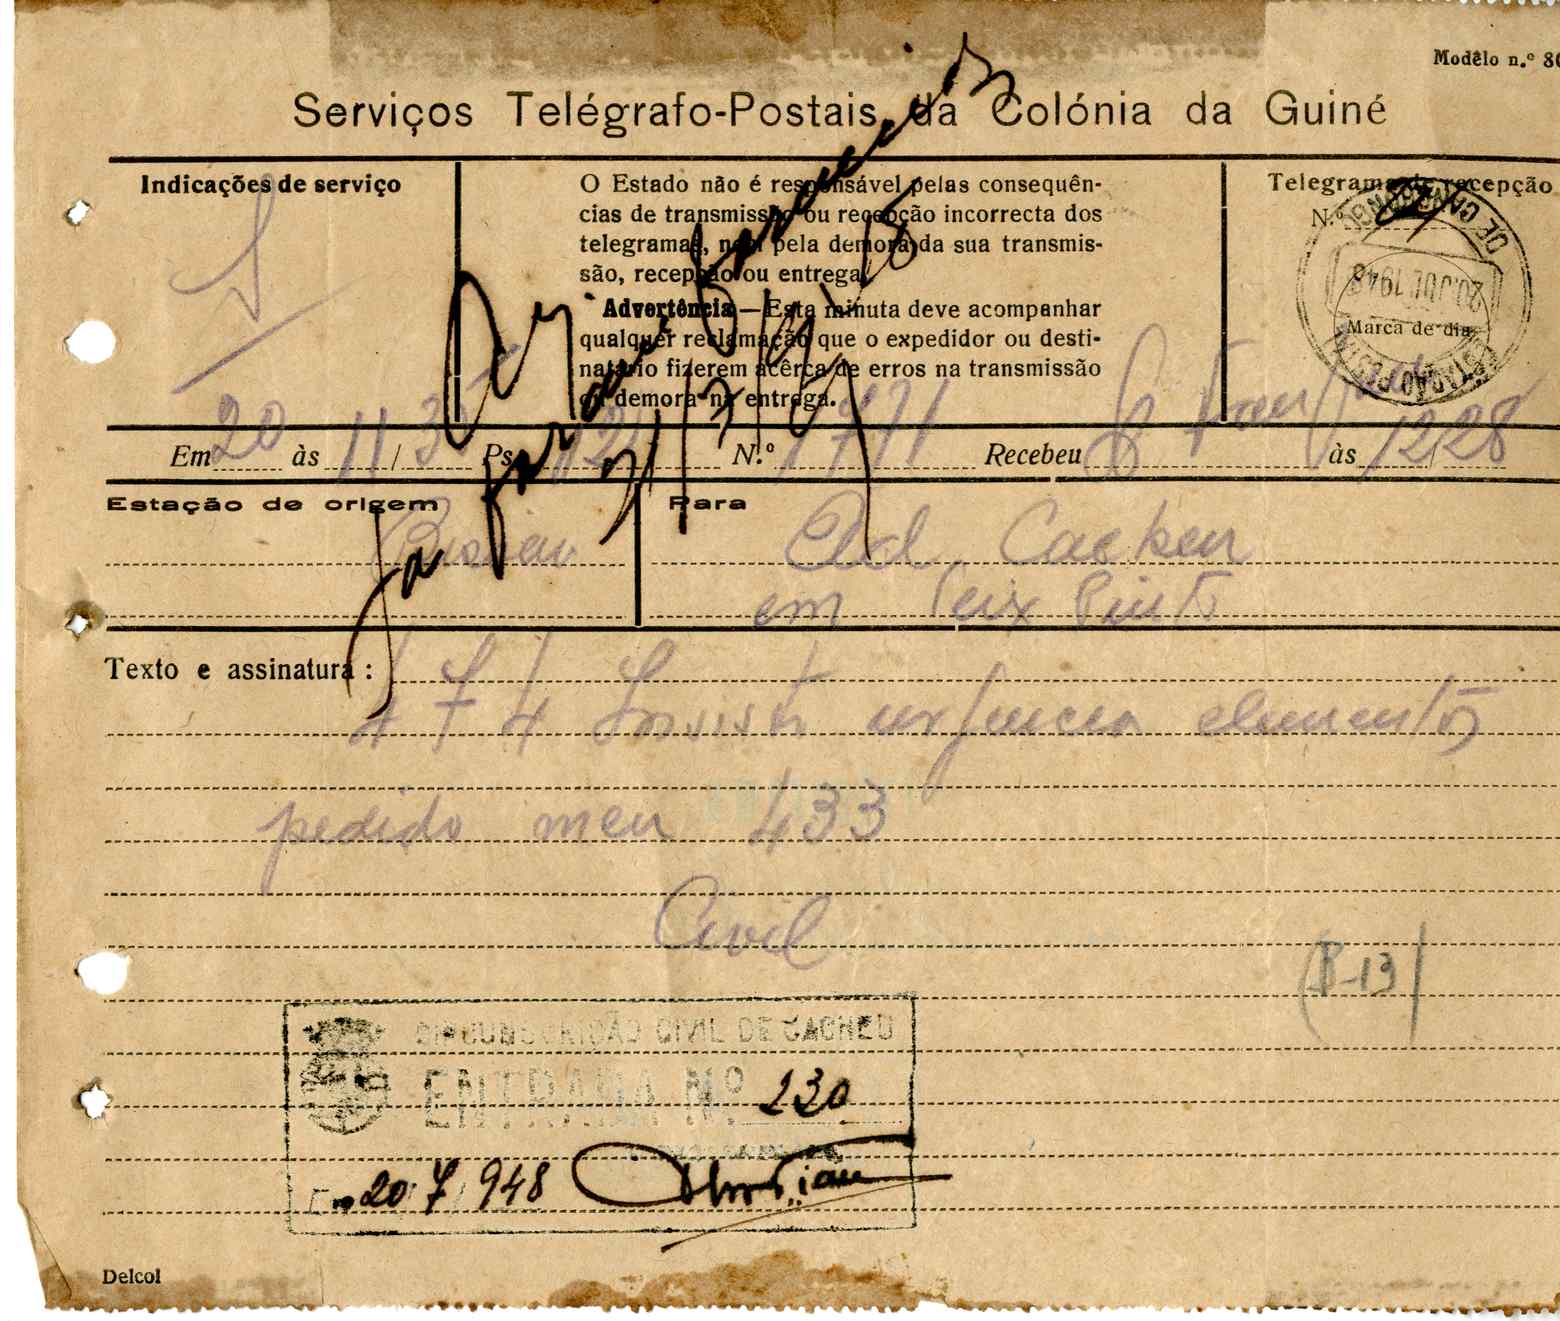 Modêlo n.º 80
Serviços Telégrafo-Postais da Colónia da Guiné
Indicações de serviço
S
O Estado não é responsável pelas consequên-
cias de transmissão ou recepção incorrecta dos
telegramas, nem pela demora da sua transmis-
são, recepção ou entrega.
Advertência—Esta minuta deve acompanhar
qualquer reclamação que o expedidor ou desti-
natário fizerem acêrca de erros na transmissão
ou demora na entrega.
Telegrama de recepção
N.º
20.JUL.1948
Marca de dia
Em 20 às 11/35 Ps. 12 N.º 1771 Recebeu às 1228
Estação de origem
Bissau
Para
Ad. Cacheu
em Teix Pinto
Texto e assinatura:
474 Insisto urgencia elementos
pedido meu 433
Civil
(B-13)
CIRCUNSCRIÇÃO CIVIL DE CACHEU
ENTRADA N.º 230
Em 20/7/948
Delcol